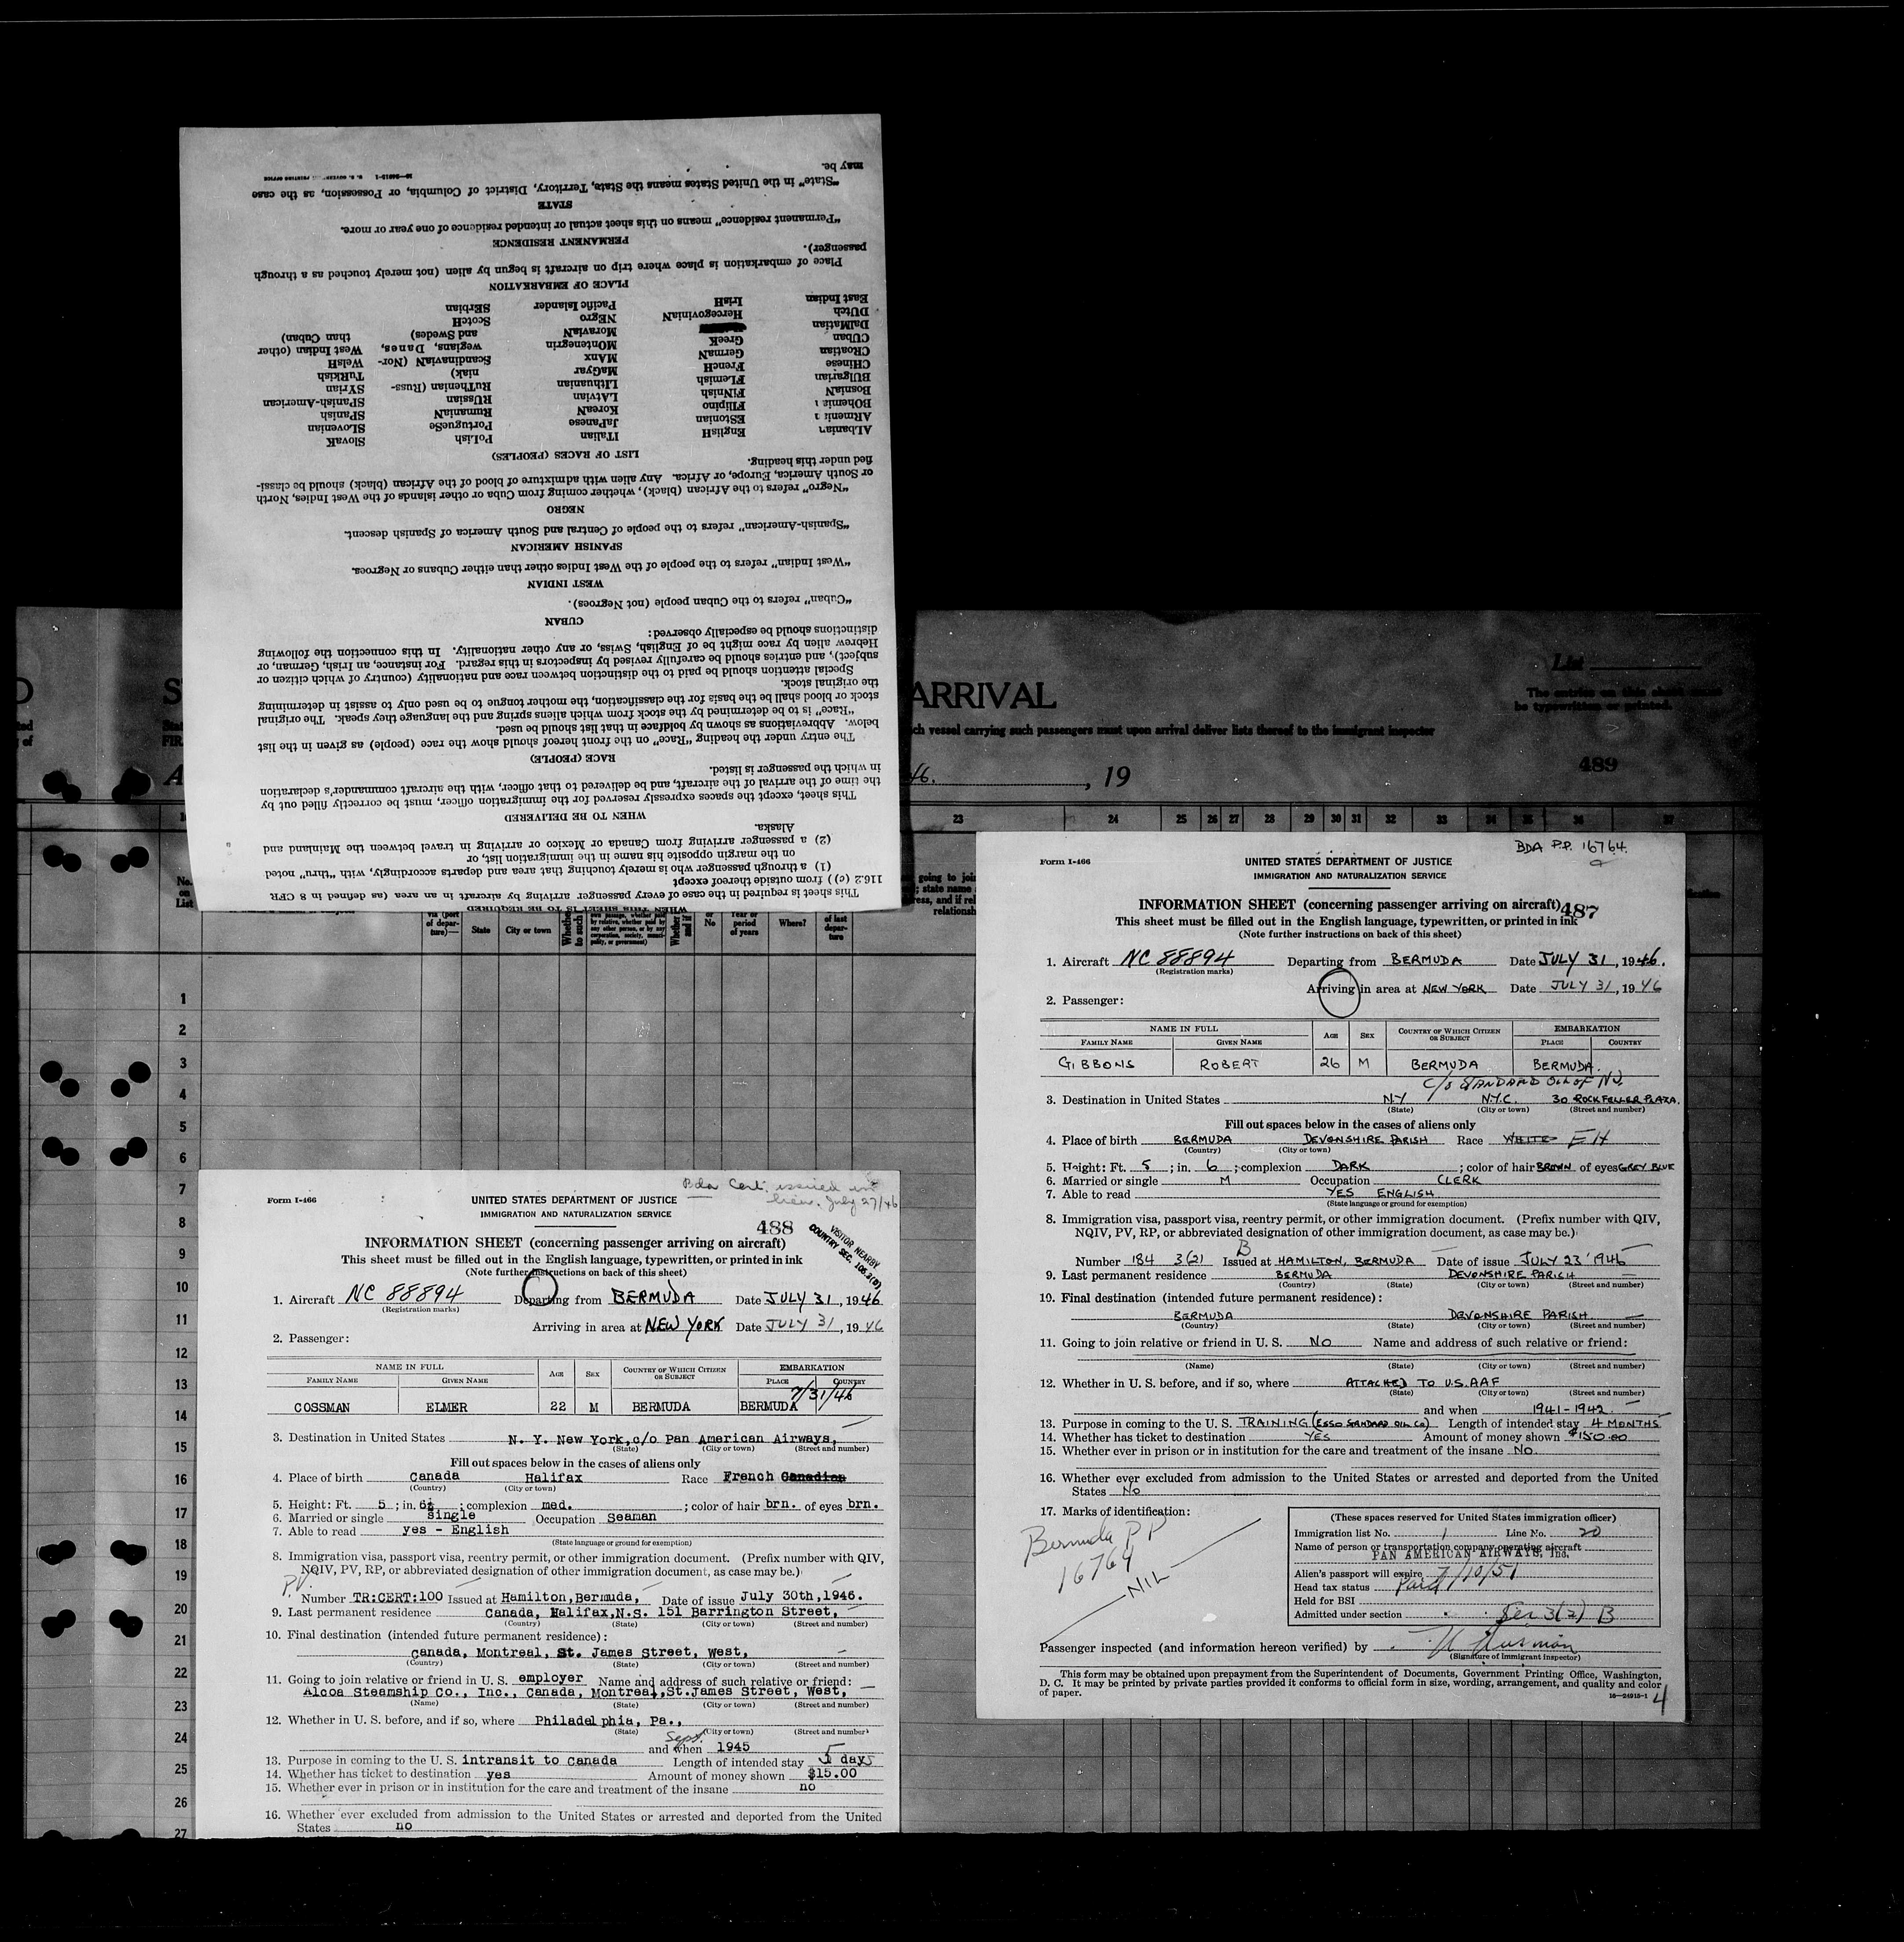 may be.
"State" in the United States means the State, Territory, District of Columbia, or Possession, as the case
STATE
"Permanent residence" means on this sheet actual or intended residence of one year or more.
PERMANENT RESIDENCE
passenger).
Place of embarkation is place where trip on aircraft is begun by alien (not merely touched as a through
PLACE OF EMBARKATION
East Indian IrisH Pacific Islander SErbian
DUtch HercegoviniaN NEgro ScotcH
DalMatian MoraviaN and Swedes) than Cuban)
CUban GreeK MOntenegrin wegians, Danes, West Indian (other
CRoatian GermaN MAnx ScandinaviaN (Nor- WelsH
CHinese FrencH MaGyar niak) TuRkish
BUlgarian FLemish LIthuanian RuThenian (Russ- SYrian
BosniaN FINnish LAtvian RUssian SPanish-American
BOhemia FIlipino KoreaN RumaniaN SPanish
ARmenia EStonian JaPanese PortugueSe SLovenian
ALbanian EnglisH ITalian PoLish SlovaK
LIST OF RACES (PEOPLES)
fied under this heading.
or South America, Europe, or Africa. Any alien with admixture of blood of the African (black) should be classi-
"Negro" refers to the African (black), whether coming from Cuba or other islands of the West Indies, North
NEGRO
"Spanish-American" refers to the people of Central and South America of Spanish descent.
SPANISH AMERICAN
"West Indian" refers to the people of the West Indies other than either Cubans or Negroes.
WEST INDIAN
"Cuban" refers to the Cuban people (not Negroes).
CUBAN
distinctions should be especially observed:
Hebrew alien by race might be of English, Swiss, or any other nationality. In this connection the following
subject), and entries should be carefully revised by inspectors in this regard. For instance, an Irish, German, or
Special attention should be paid to the distinction between race and nationality (country of which citizen or
the original stock.
stock or blood shall be the basis for the classification, the mother tongue to be used only to assist in determining
"Race" is to be determined by the stock from which aliens spring and the language they speak. The original
below. Abbreviations as shown by boldface in that list should be used.
The entry under the heading "Race" on the front hereof should show the race (people) as given in the list
RACE (PEOPLE)
in which the passenger is listed.
the time of the arrival of the aircraft, and be delivered to that officer, with the aircraft commander's declaration
This sheet, except the spaces expressly reserved for the immigration officer, must be correctly filled out by
WHEN TO BE DELIVERED
Alaska.
(2) a passenger arriving from Canada or Mexico or arriving in travel between the Mainland and
on the margin opposite his name in the immigration list, or
(1) a through passenger who is merely touching that area and departs accordingly, with "thru" noted
116.2 (c)) from outside thereof except
This sheet is required in the case of every passenger arriving by aircraft in an area (as defined in 8 CFR
WHEN THIS SHEET IS TO BE REQUIRED
ARRIVAL
List
The entries on this sheet must
be typewritten or printed.
ch vessel carrying such passengers must upon arrival deliver lists thereof to the immigrant inspector
46. , 19
489
23 24 25 26 27 28 29 30 31 32 33 34 35 36 37
No. on List
via (port of departure)—
State
City or town
Whether
No
Year or period of years
Where?
of last departure
1
2
3
4
5
6
7
8
9
10
11
12
13
14
15
16
17
18
19
20
21
22
23
24
25
26
27
Bda Cert. issued in
July 27/46
Form I-466
UNITED STATES DEPARTMENT OF JUSTICE
IMMIGRATION AND NATURALIZATION SERVICE
488
VISITOR NEARBY
COUNTRY SEC.
INFORMATION SHEET (concerning passenger arriving on aircraft)
This sheet must be filled out in the English language, typewritten, or printed in ink
(Note further instructions on back of this sheet)
1. Aircraft NC 88894 Departing from BERMUDA Date JULY 31, 1946
(Registration marks)
Arriving in area at NEW YORK Date JULY 31, 1946
2. Passenger:
NAME IN FULL AGE SEX COUNTRY OF WHICH CITIZEN OR SUBJECT EMBARKATION
FAMILY NAME GIVEN NAME PLACE COUNTRY
7/31/46
COSSMAN ELMER 22 M BERMUDA BERMUDA
3. Destination in United States N. Y. New York, c/o Pan American Airways,
(State) (City or town) (Street and number)
Fill out spaces below in the cases of aliens only
4. Place of birth Canada Halifax Race French Canadian
(Country) (City or town)
5. Height: Ft. 5 ; in. 6½ ; complexion med. ; color of hair brn. of eyes brn.
6. Married or single single Occupation Seaman
7. Able to read yes - English
(State language or ground for exemption)
8. Immigration visa, passport visa, reentry permit, or other immigration document. (Prefix number with QIV,
NQIV, PV, RP, or abbreviated designation of other immigration document, as case may be.)
P.V.
Number TR:CERT:100 Issued at Hamilton, Bermuda, Date of issue July 30th, 1946.
9. Last permanent residence Canada, Halifax, N.S. 151 Barrington Street,
(Country) (State) (City or town) (Street and number)
10. Final destination (intended future permanent residence):
canada, Montreal, St. James Street, West,
(Country) (State) (City or town) (Street and number)
11. Going to join relative or friend in U. S. employer Name and address of such relative or friend:
Alcoa Steamship Co., Inc., Canada, Montreal, St.James Street, West,
(Name) (State) (City or town) (Street and number)
12. Whether in U. S. before, and if so, where Philadelphia, Pa.,
(State) (City or town) (Street and number)
Sept.
and when 1945
13. Purpose in coming to the U. S. intransit to canada Length of intended stay 5 days
14. Whether has ticket to destination yes Amount of money shown $15.00
15. Whether ever in prison or in institution for the care and treatment of the insane no
16. Whether ever excluded from admission to the United States or arrested and deported from the United
States no
BDA P.P. 16764.
Form I-466
UNITED STATES DEPARTMENT OF JUSTICE
IMMIGRATION AND NATURALIZATION SERVICE
INFORMATION SHEET (concerning passenger arriving on aircraft)
487
This sheet must be filled out in the English language, typewritten, or printed in ink
(Note further instructions on back of this sheet)
1. Aircraft NC 88894 Departing from BERMUDA Date JULY 31, 1946.
(Registration marks)
Arriving in area at NEW YORK Date JULY 31, 1946
2. Passenger:
NAME IN FULL AGE SEX COUNTRY OF WHICH CITIZEN OR SUBJECT EMBARKATION
FAMILY NAME GIVEN NAME PLACE COUNTRY
GIBBONS ROBERT 26 M BERMUDA BERMUDA.
C/o STANDARD OIL OF NJ.
3. Destination in United States N.Y. N.Y.C. 30 ROCKFELLER PLAZA.
(State) (City or town) (Street and number)
Fill out spaces below in the cases of aliens only
4. Place of birth BERMUDA DEVONSHIRE PARISH Race WHITE EH
(Country) (City or town)
5. Height: Ft. 5 ; in. 6 ; complexion DARK ; color of hair BROWN of eyes GREY BLUE
6. Married or single M Occupation CLERK
7. Able to read YES ENGLISH
(State language or ground for exemption)
8. Immigration visa, passport visa, reentry permit, or other immigration document. (Prefix number with QIV,
NQIV, PV, RP, or abbreviated designation of other immigration document, as case may be.)
B
Number 184 3(2) Issued at HAMILTON, BERMUDA Date of issue JULY 23 1946
9. Last permanent residence BERMUDA DEVONSHIRE PARISH
(Country) (State) (City or town) (Street and number)
10. Final destination (intended future permanent residence):
BERMUDA DEVONSHIRE PARISH.
(Country) (State) (City or town) (Street and number)
11. Going to join relative or friend in U. S. NO Name and address of such relative or friend:
(Name) (State) (City or town) (Street and number)
12. Whether in U. S. before, and if so, where ATTACHED TO U.S.AAF
(State) (City or town) (Street and number)
and when 1941-1942.
13. Purpose in coming to the U. S. TRAINING (ESSO STANDARD OIL CO) Length of intended stay 4 MONTHS
14. Whether has ticket to destination YES Amount of money shown $150.00
15. Whether ever in prison or in institution for the care and treatment of the insane NO
16. Whether ever excluded from admission to the United States or arrested and deported from the United
States NO
17. Marks of identification:
Bermuda PP
16764
NIL
(These spaces reserved for United States immigration officer)
Immigration list No. 1 Line No. 20
Name of person or transportation company operating aircraft
PAN AMERICAN AIRWAYS, Inc.
Alien's passport will expire 7/10/51
Head tax status Paid
Held for BSI
Admitted under section Sec 3(2) B
Passenger inspected (and information hereon verified) by
(Signature of immigrant inspector)
This form may be obtained upon prepayment from the Superintendent of Documents, Government Printing Office, Washington,
D. C. It may be printed by private parties provided it conforms to official form in size, wording, arrangement, and quality and color
of paper.
16—24915-1
4